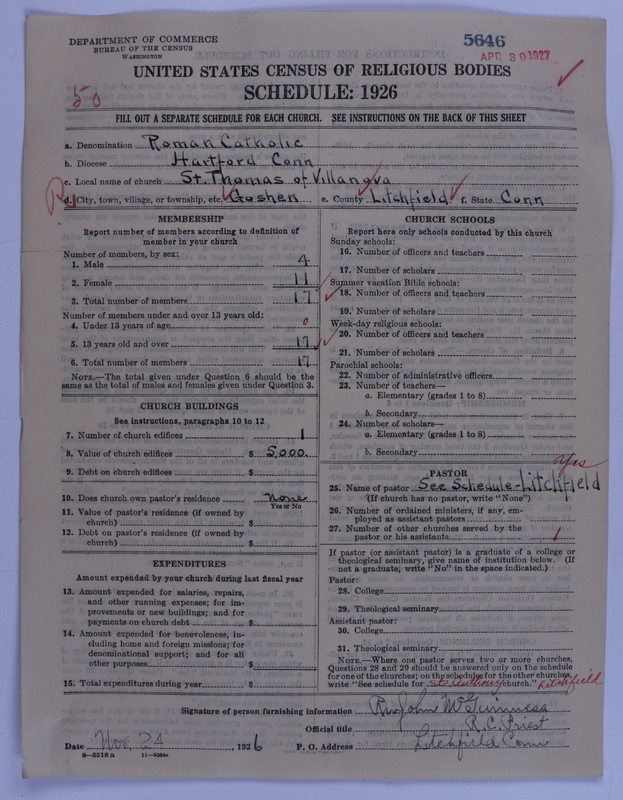 DEPARTMENT OF COMMERCE
BUREAU OF THE CENSUS
WASHINGTON
5646
APR 30 1927
50
UNITED STATES CENSUS OF RELIGIOUS BODIES
SCHEDULE: 1926
FILL OUT A SEPARATE SCHEDULE FOR EACH CHURCH. SEE INSTRUCTIONS ON THE BACK OF THIS SHEET
a. Denomination Roman Catholic
b. Diocese Hartford Conn
c. Local name of church St. Thomas of Villanova
R
d. City, town, village, or township, etc. Goshen e. County Litchfield f. State Conn
MEMBERSHIP
Report number of members according to definition of
member in your church
Number of members, by sex:
1. Male 4
2. Female 11
3. Total number of members 17
Number of members under and over 13 years old:
4. Under 13 years of age 0
5. 13 years old and over 17
6. Total number of members 17
NOTE.—The total given under Question 6 should be the
same as the total of males and females given under Question 3.
CHURCH BUILDINGS
See instructions, paragraphs 10 to 12
7. Number of church edifices 1
8. Value of church edifices $ 5,000.
9. Debt on church edifices $
10. Does church own pastor's residence None
Yes or No
11. Value of pastor's residence (if owned by
church) $
12. Debt on pastor's residence (if owned by
church) $
EXPENDITURES
Amount expended by your church during last fiscal year
13. Amount expended for salaries, repairs,
and other running expenses; for im-
provements or new buildings; and for
payments on church debt $
14. Amount expended for benevolences, in-
cluding home and foreign missions; for
denominational support; and for all
other purposes $
15. Total expenditures during year $
CHURCH SCHOOLS
Report here only schools conducted by this church
Sunday schools:
16. Number of officers and teachers
17. Number of scholars
Summer vacation Bible schools:
18. Number of officers and teachers
19. Number of scholars
Week-day religious schools:
20. Number of officers and teachers
21. Number of scholars
Parochial schools:
22. Number of administrative officers
23. Number of teachers—
a. Elementary (grades 1 to 8)
b. Secondary
24. Number of scholars—
a. Elementary (grades 1 to 8)
b. Secondary
yes
PASTOR
25. Name of pastor See Schedule - Litchfield
(If church has no pastor, write "None")
26. Number of ordained ministers, if any, em-
ployed as assistant pastors
27. Number of other churches served by the
pastor or his assistants 1
If pastor (or assistant pastor) is a graduate of a college or
theological seminary, give name of institution below. (If
not a graduate, write "No" in the space indicated.)
Pastor:
28. College
29. Theological seminary
Assistant pastor:
30. College
31. Theological seminary
NOTE.—Where one pastor serves two or more churches,
Questions 28 and 29 should be answered only on the schedule
for one of the churches; on the schedules for the other churches,
write "See schedule for St. Anthony church." Litchfield
Signature of person furnishing information Rev John McGuinness
Official title R.C. Priest
Date Nov. 24, 1926 P. O. Address Litchfield Conn
8—5518a 11—9084